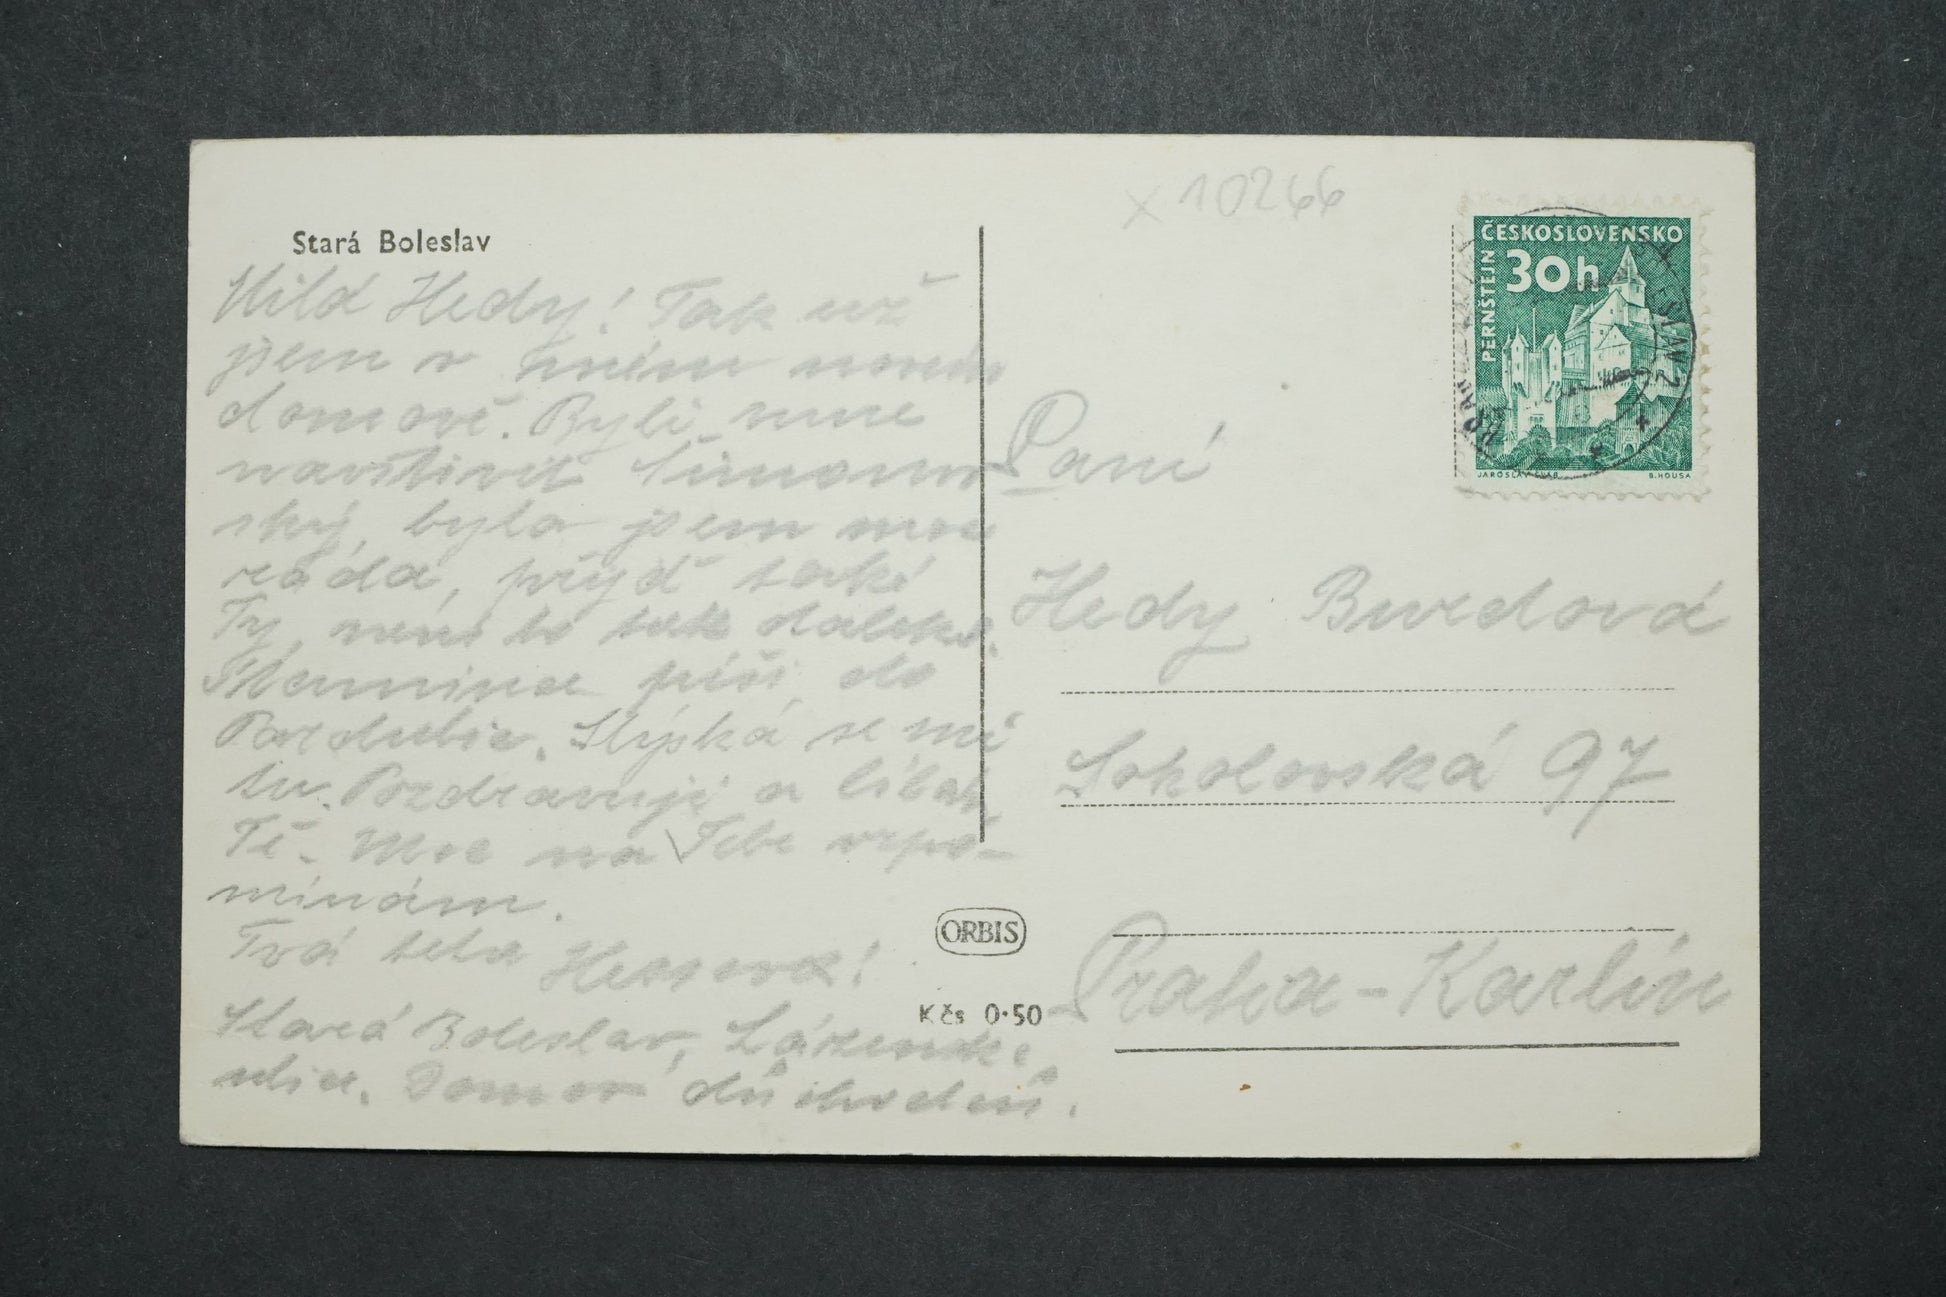 Stará Boleslav
Milá Hedy! Tak už
jsem v jiném novém
domově. Byli mne
navštívit Šimanov
ský, byla jsem moc
ráda, přijď také
Ty, není to tak daleko.
Maminka píši do
Pardubic. Stýská se mi
tu. Pozdravuji a líbám
Tě. Moc na Tebe vzpo-
mínám.
Tvá teta
Stará Boleslav, Lázeňská
ulice. Domov důchodců.
ORBIS
Kčs 0·50
x 10266
ČESKOSLOVENSKO
30h
PERNŠTEJN
B. HOUSA
Paní
Hedy Burdová
Sokolovská 97
Praha-Karlín